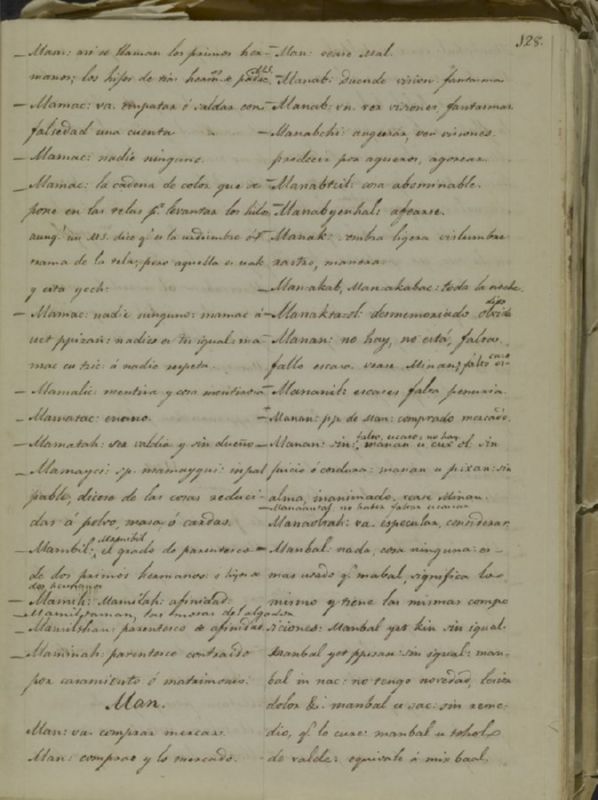 128.
Mam: asi se llaman los primos her-
manos; los hijos de tia herm.a de padre.
Mamac: va. imputar ó saldar con
falsedad una cuenta
Mamac: nadie ninguno.
Mamac: la cadena de color que se
pone en las telas p.a levantar los hilos
aunq.e un MS. dice q.e es la urdiembre ó
trama de la tela; pero aquella es uak
y esta yoch:
Mamac: nadie ninguno: mamac á
uet ppizan: nadie es tu igual: ma-
mac cu tzic: á nadie respeta.
Mamalic mentira y cosa mentirosa
Mamatac: enano.
Mamatah: ser valdia y sin dueño
Mamayci: sp. mamayqui: impal
pable, dicese de las cosas reduci-
das á polvo, masa ó cardas.
Mambil: Mamibil el grado de parentesco
de dos primos hermanos: ó hijos de
dos hermanos
Mamil: Mamilah: afinidad.
Mamilthan: parentesco de afinidad
Maminah: parentesco contraido
por casamiento ó matrimonio.
Man.
Man: va. comprar mercar.
Man: comprar y lo mercado.
Man: vease Mal.
Manab: Duende vision fantasma
Manab: vn. ver visiones fantasmas
Manabchi: augurar, ver visiones
predecir por agueros, agorear
Manabtzil: cosa abominable.
Manabyenhal: afearse.
Manak: sombra ligera vislumbre
rastro, manera
Manakab, Manakabac: toda la noche.
Manaktaol: desmemoriado olvida
dizo
Manan: no hay, no está, falta
fallo escaso. vease Minan; falto
Mananil: escases falta penuria.
Manan: pp. de Man: comprado mercado.
Manan: sin: falto, escaso, no hay manan u cux ol. sin
juicio ó cordura: manan u pixan: sin
alma, inanimado. vease Minan.
no haber faltar escasear
Manaolah: va. especular, considerar
Manbal: nada, cosa ninguna: es-
mas usado q.e mabal, significa lo
mismo y tiene las mismas compo
siciones: Manbal yet kin sin igual.
Manbal yet ppizan: sin igual: man-
bal in nac: no tengo novedad, lesion
dolor &.: manbal u sac: sin reme-
dio, q.e lo cure: manbal u tohol
de valde: equivale á mixbaal